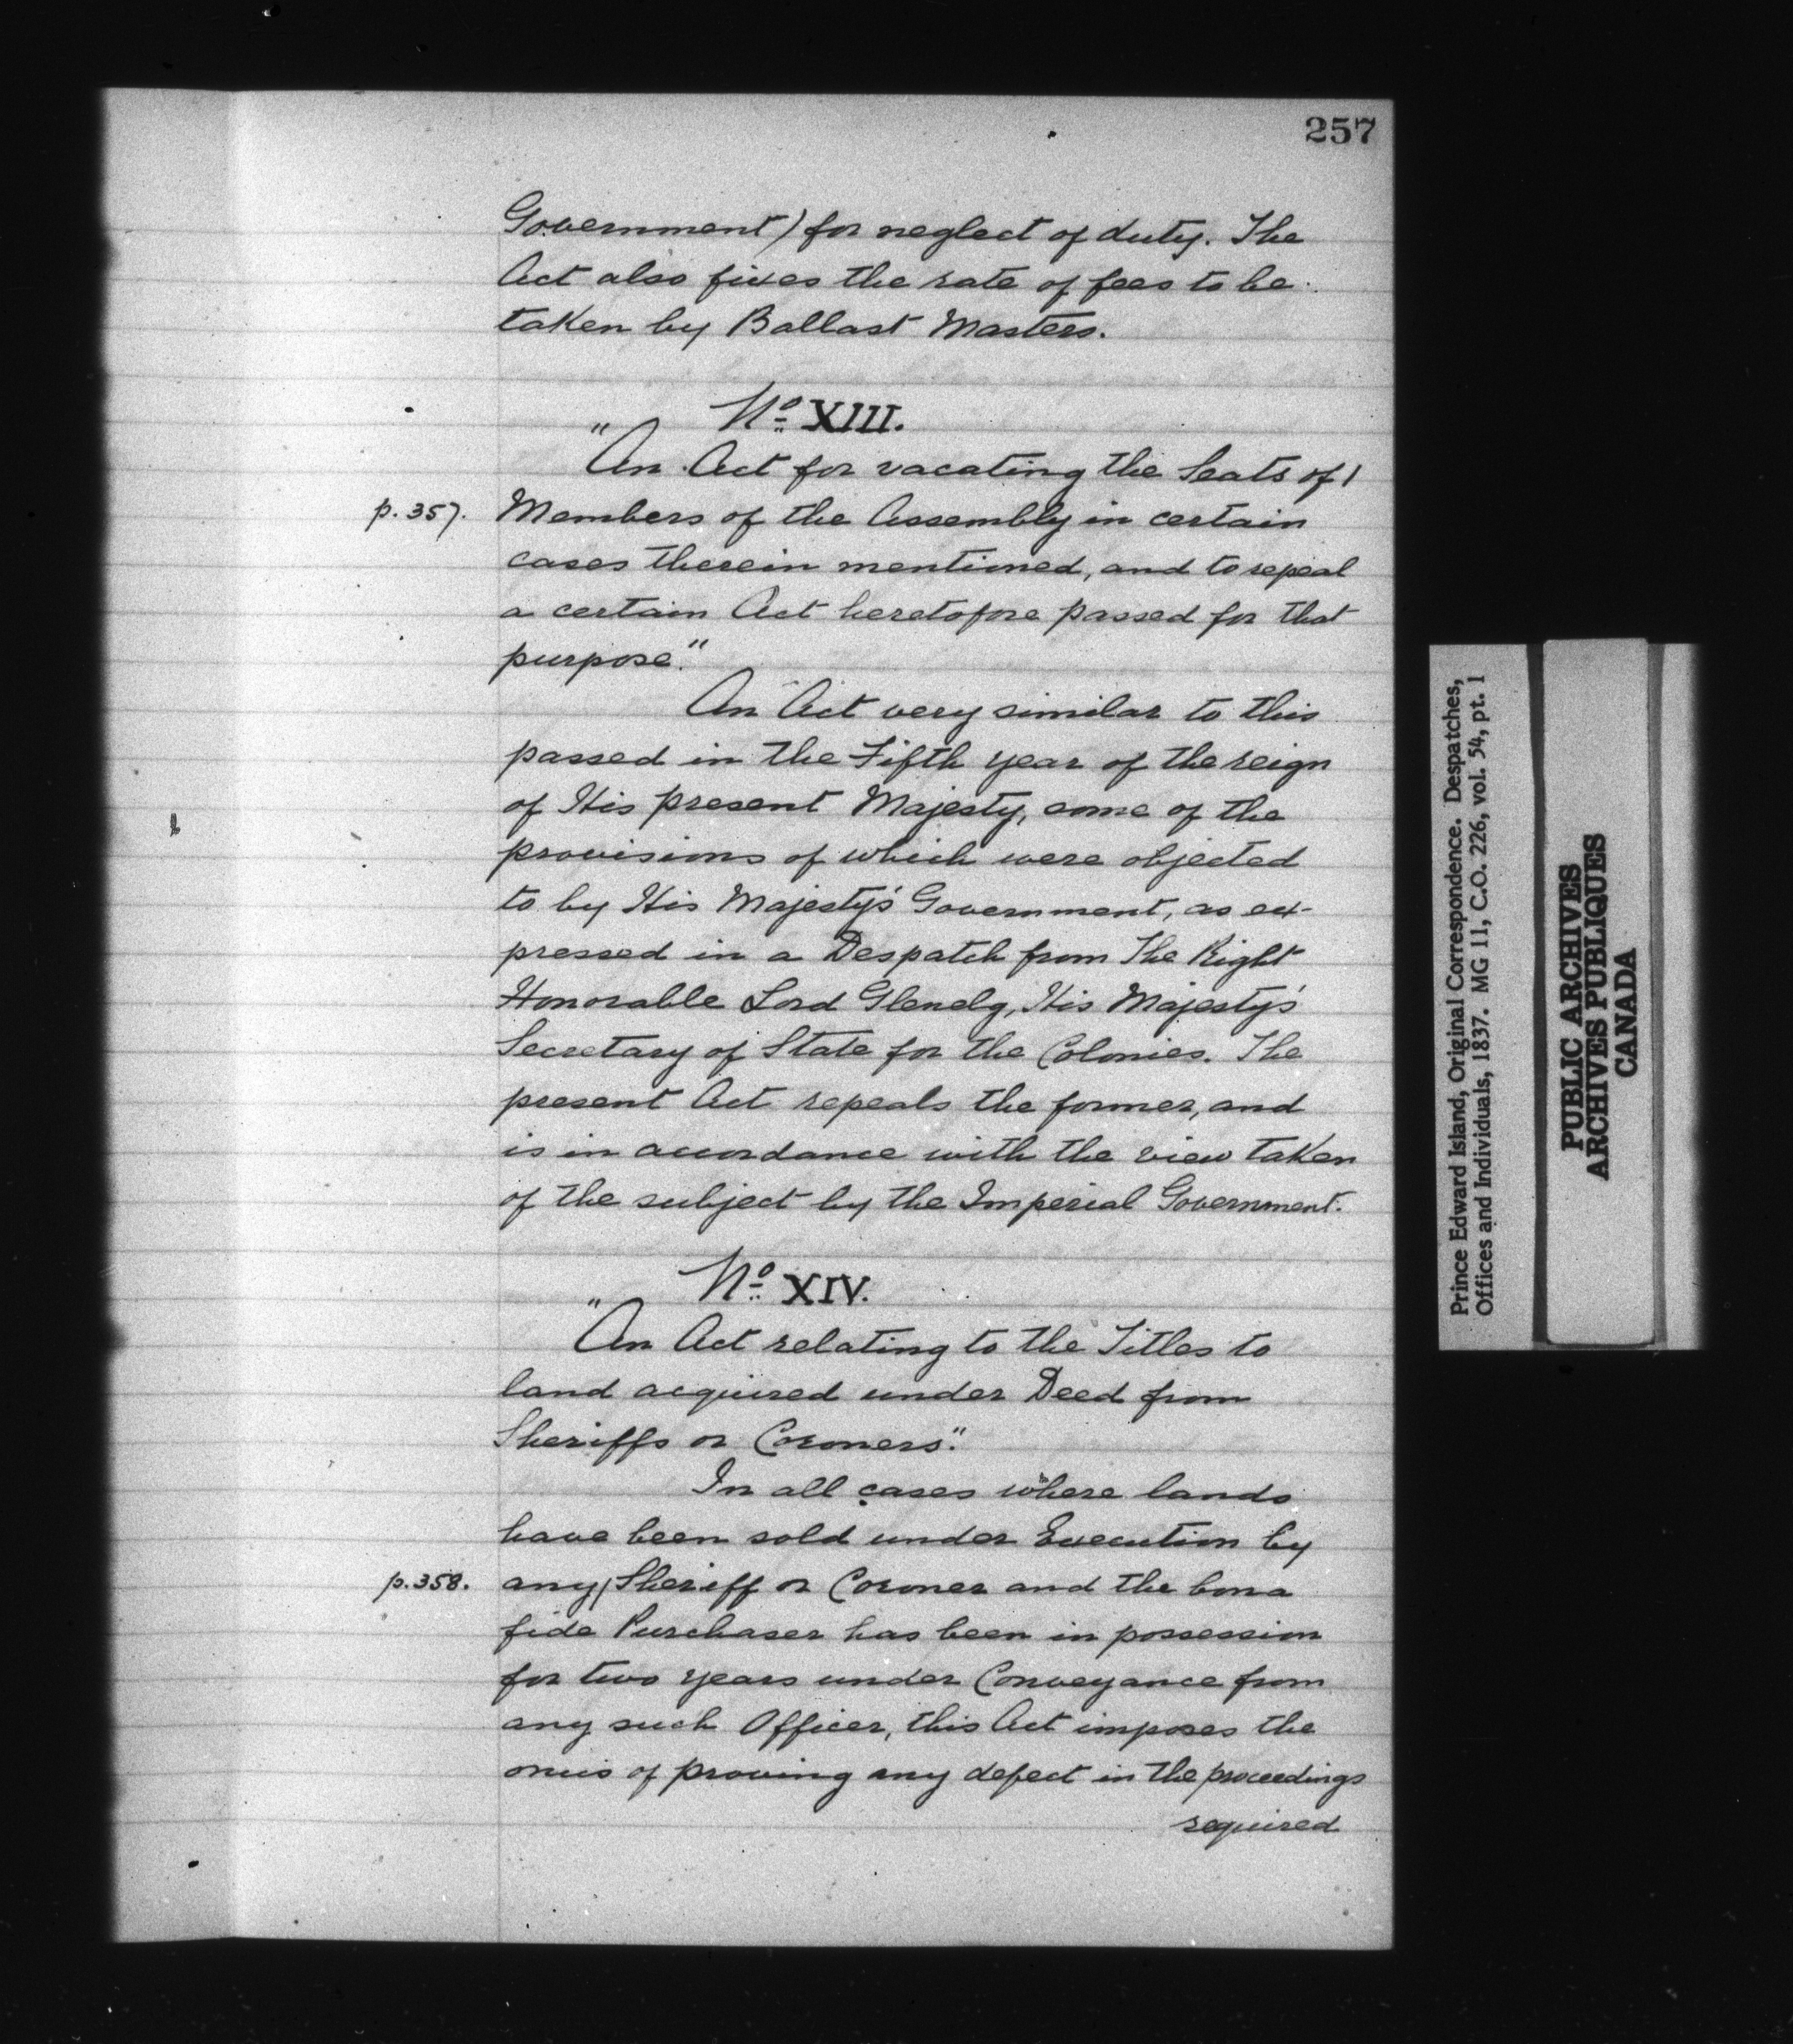 257
Government) for neglect of duty. The
Act also fixes the rate of fees to be
taken by Ballast Masters.
No. XIII.
"An Act for vacating the Seats of /
p. 357. Members of the Assembly in certain
cases therein mentioned, and to repeal
a certain Act heretofore passed for that
purpose."
An Act very similar to this
passed in the Fifth year of the reign
of His present Majesty, some of the
provisions of which were objected
to by His Majesty's Government, as ex-
pressed in a Despatch from The Right
Honorable Lord Glenelg, His Majesty's
Secretary of State for the Colonies. The
present Act repeals the former, and
is in accordance with the view taken
of the subject by the Imperial Government.
No. XIV.
"An Act relating to the Titles to
land acquired under Deed from
Sheriffs or Coroners."
In all cases where lands
have been sold under Execution by
p. 358. any / Sheriff or Coroner and the bona
fide Purchaser has been in possession
for two years under Conveyance from
any such Officer, this Act imposes the
onus of proving any defect in the proceedings
required
Prince Edward Island, Original Correspondence. Despatches,
Offices and Individuals, 1837. MG 11, C.O. 226, vol. 54, pt. 1
PUBLIC ARCHIVES
ARCHIVES PUBLIQUES
CANADA